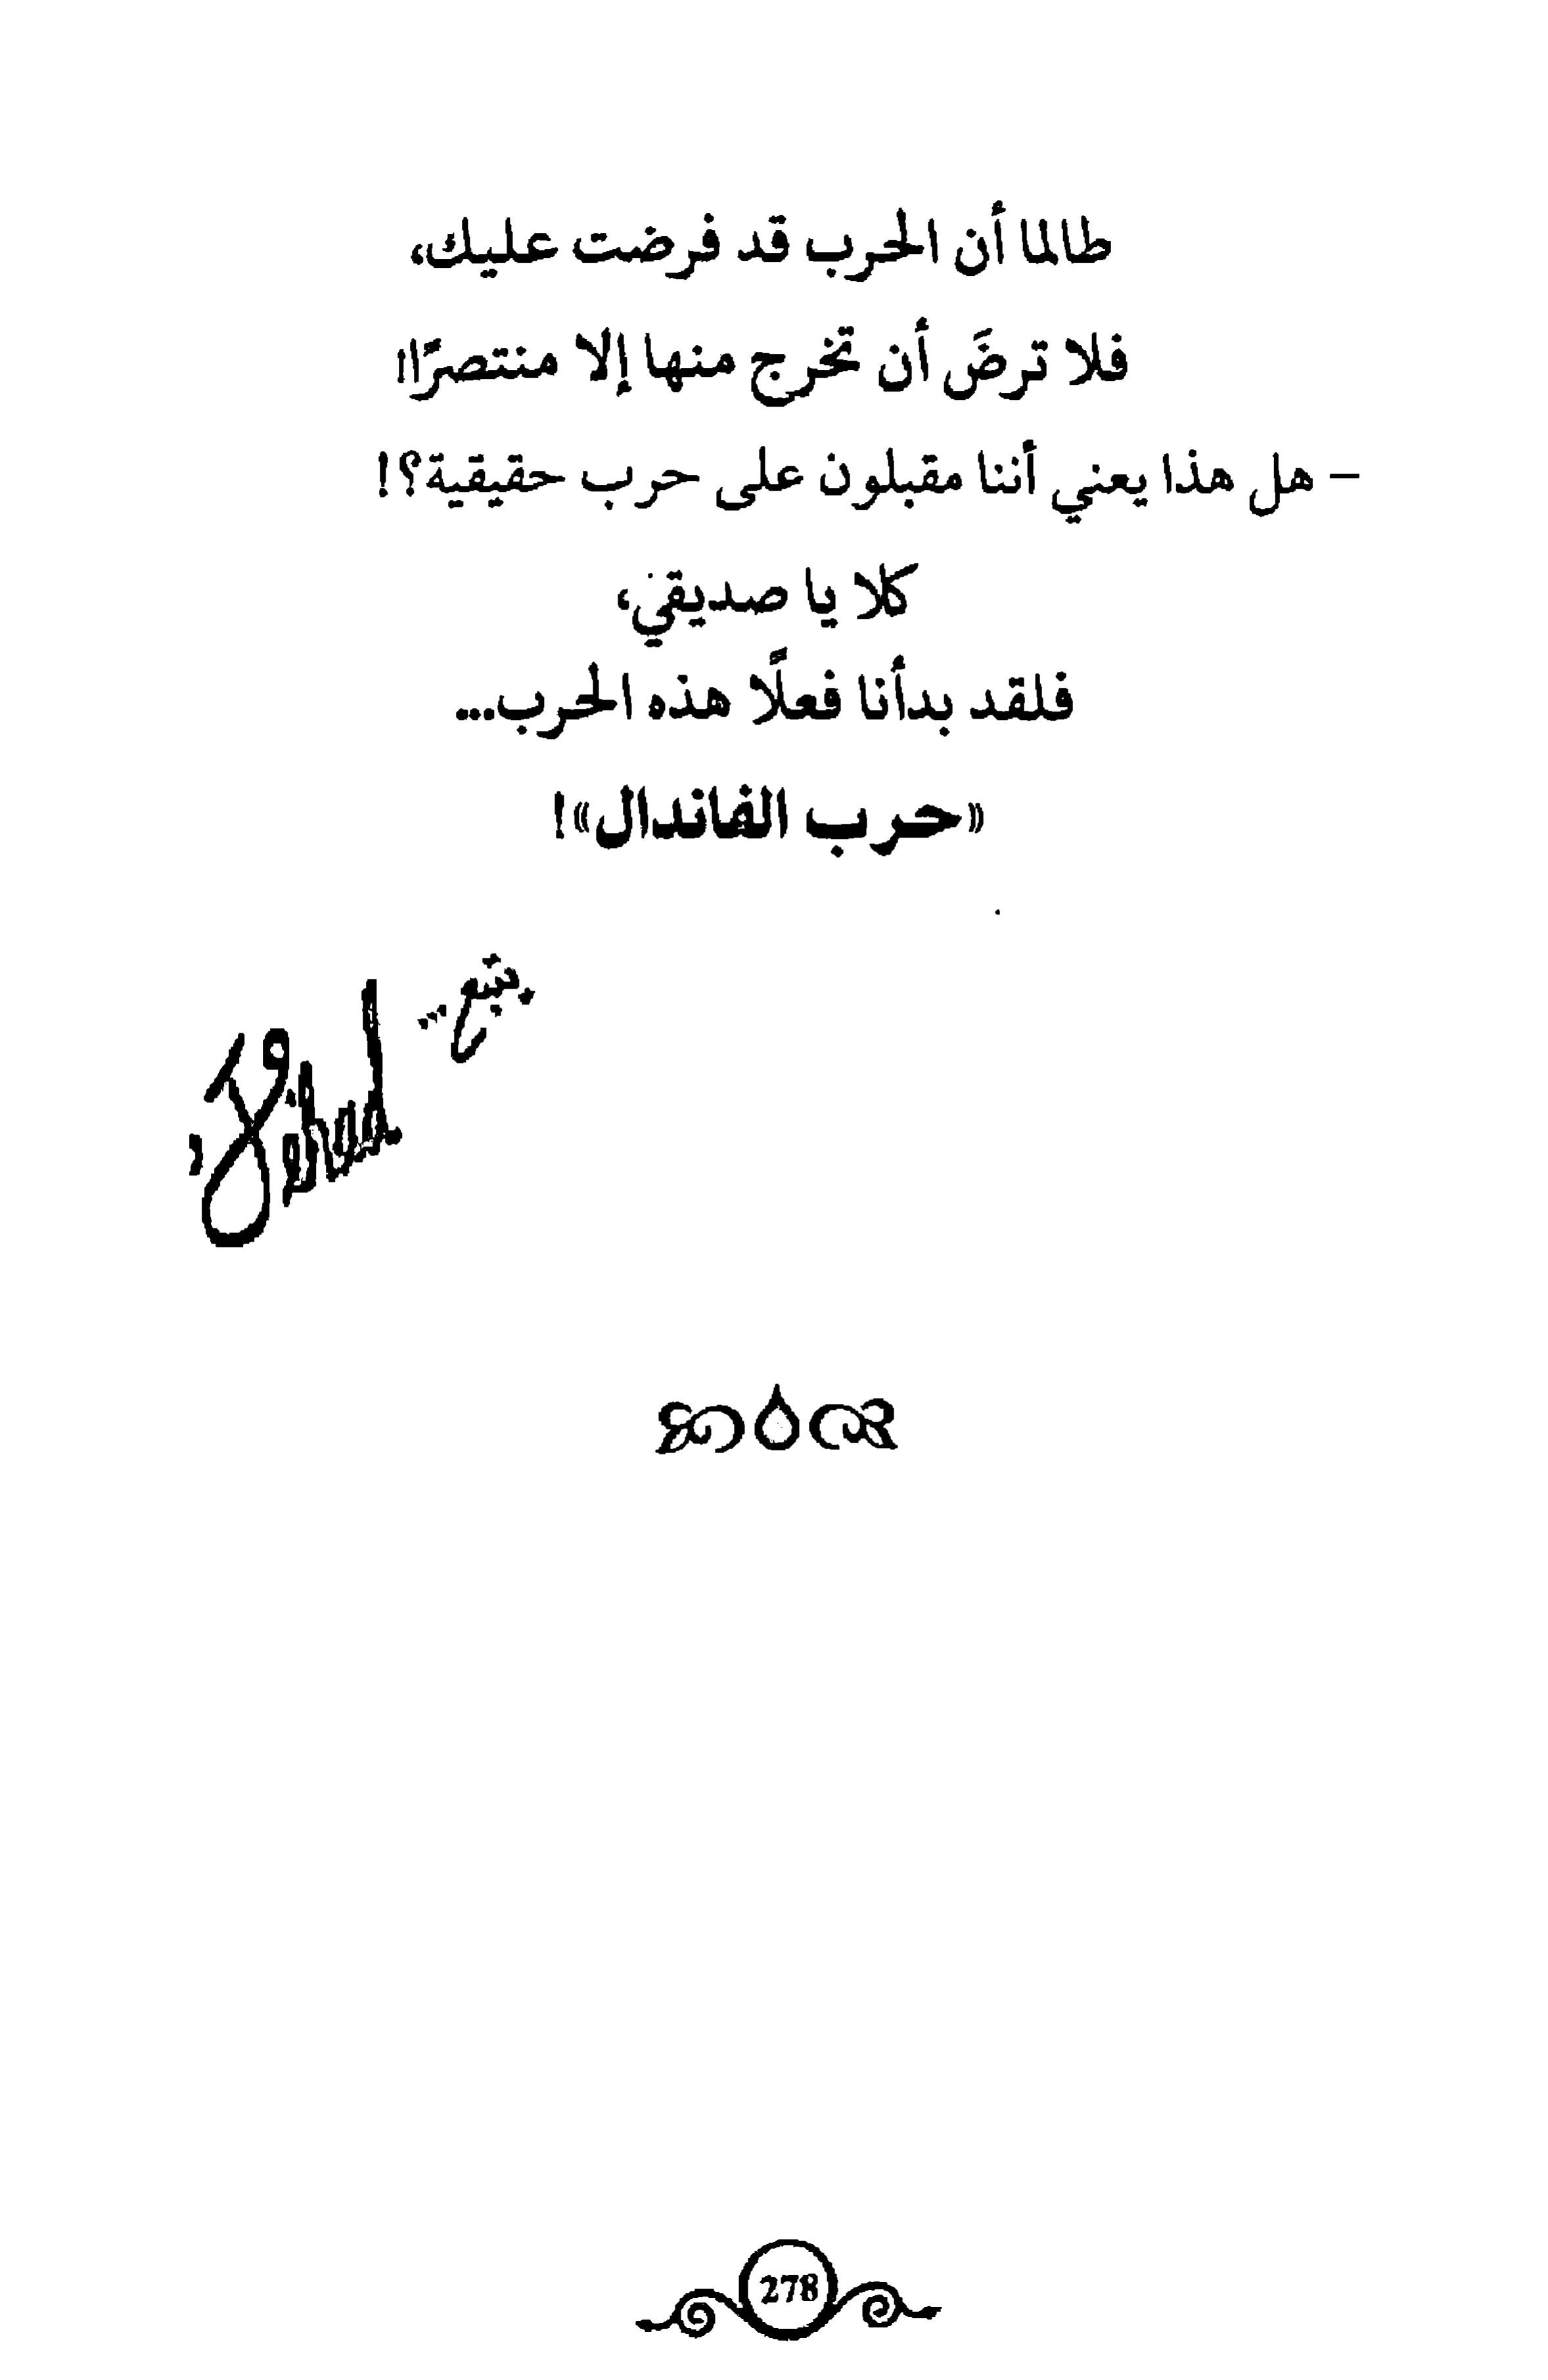 طالما أن الحرب قد فرضت عليك،
فلا ترضَ أن تخرج منها إلا منتصرًا!
- هل هذا يعني أننا مقبلون على حرب حقيقية؟!
كلا يا صديقي،
فلقد بدأنا فعلًا هذه الحرب...
«حرب الفاندال»!
يتبع...
278